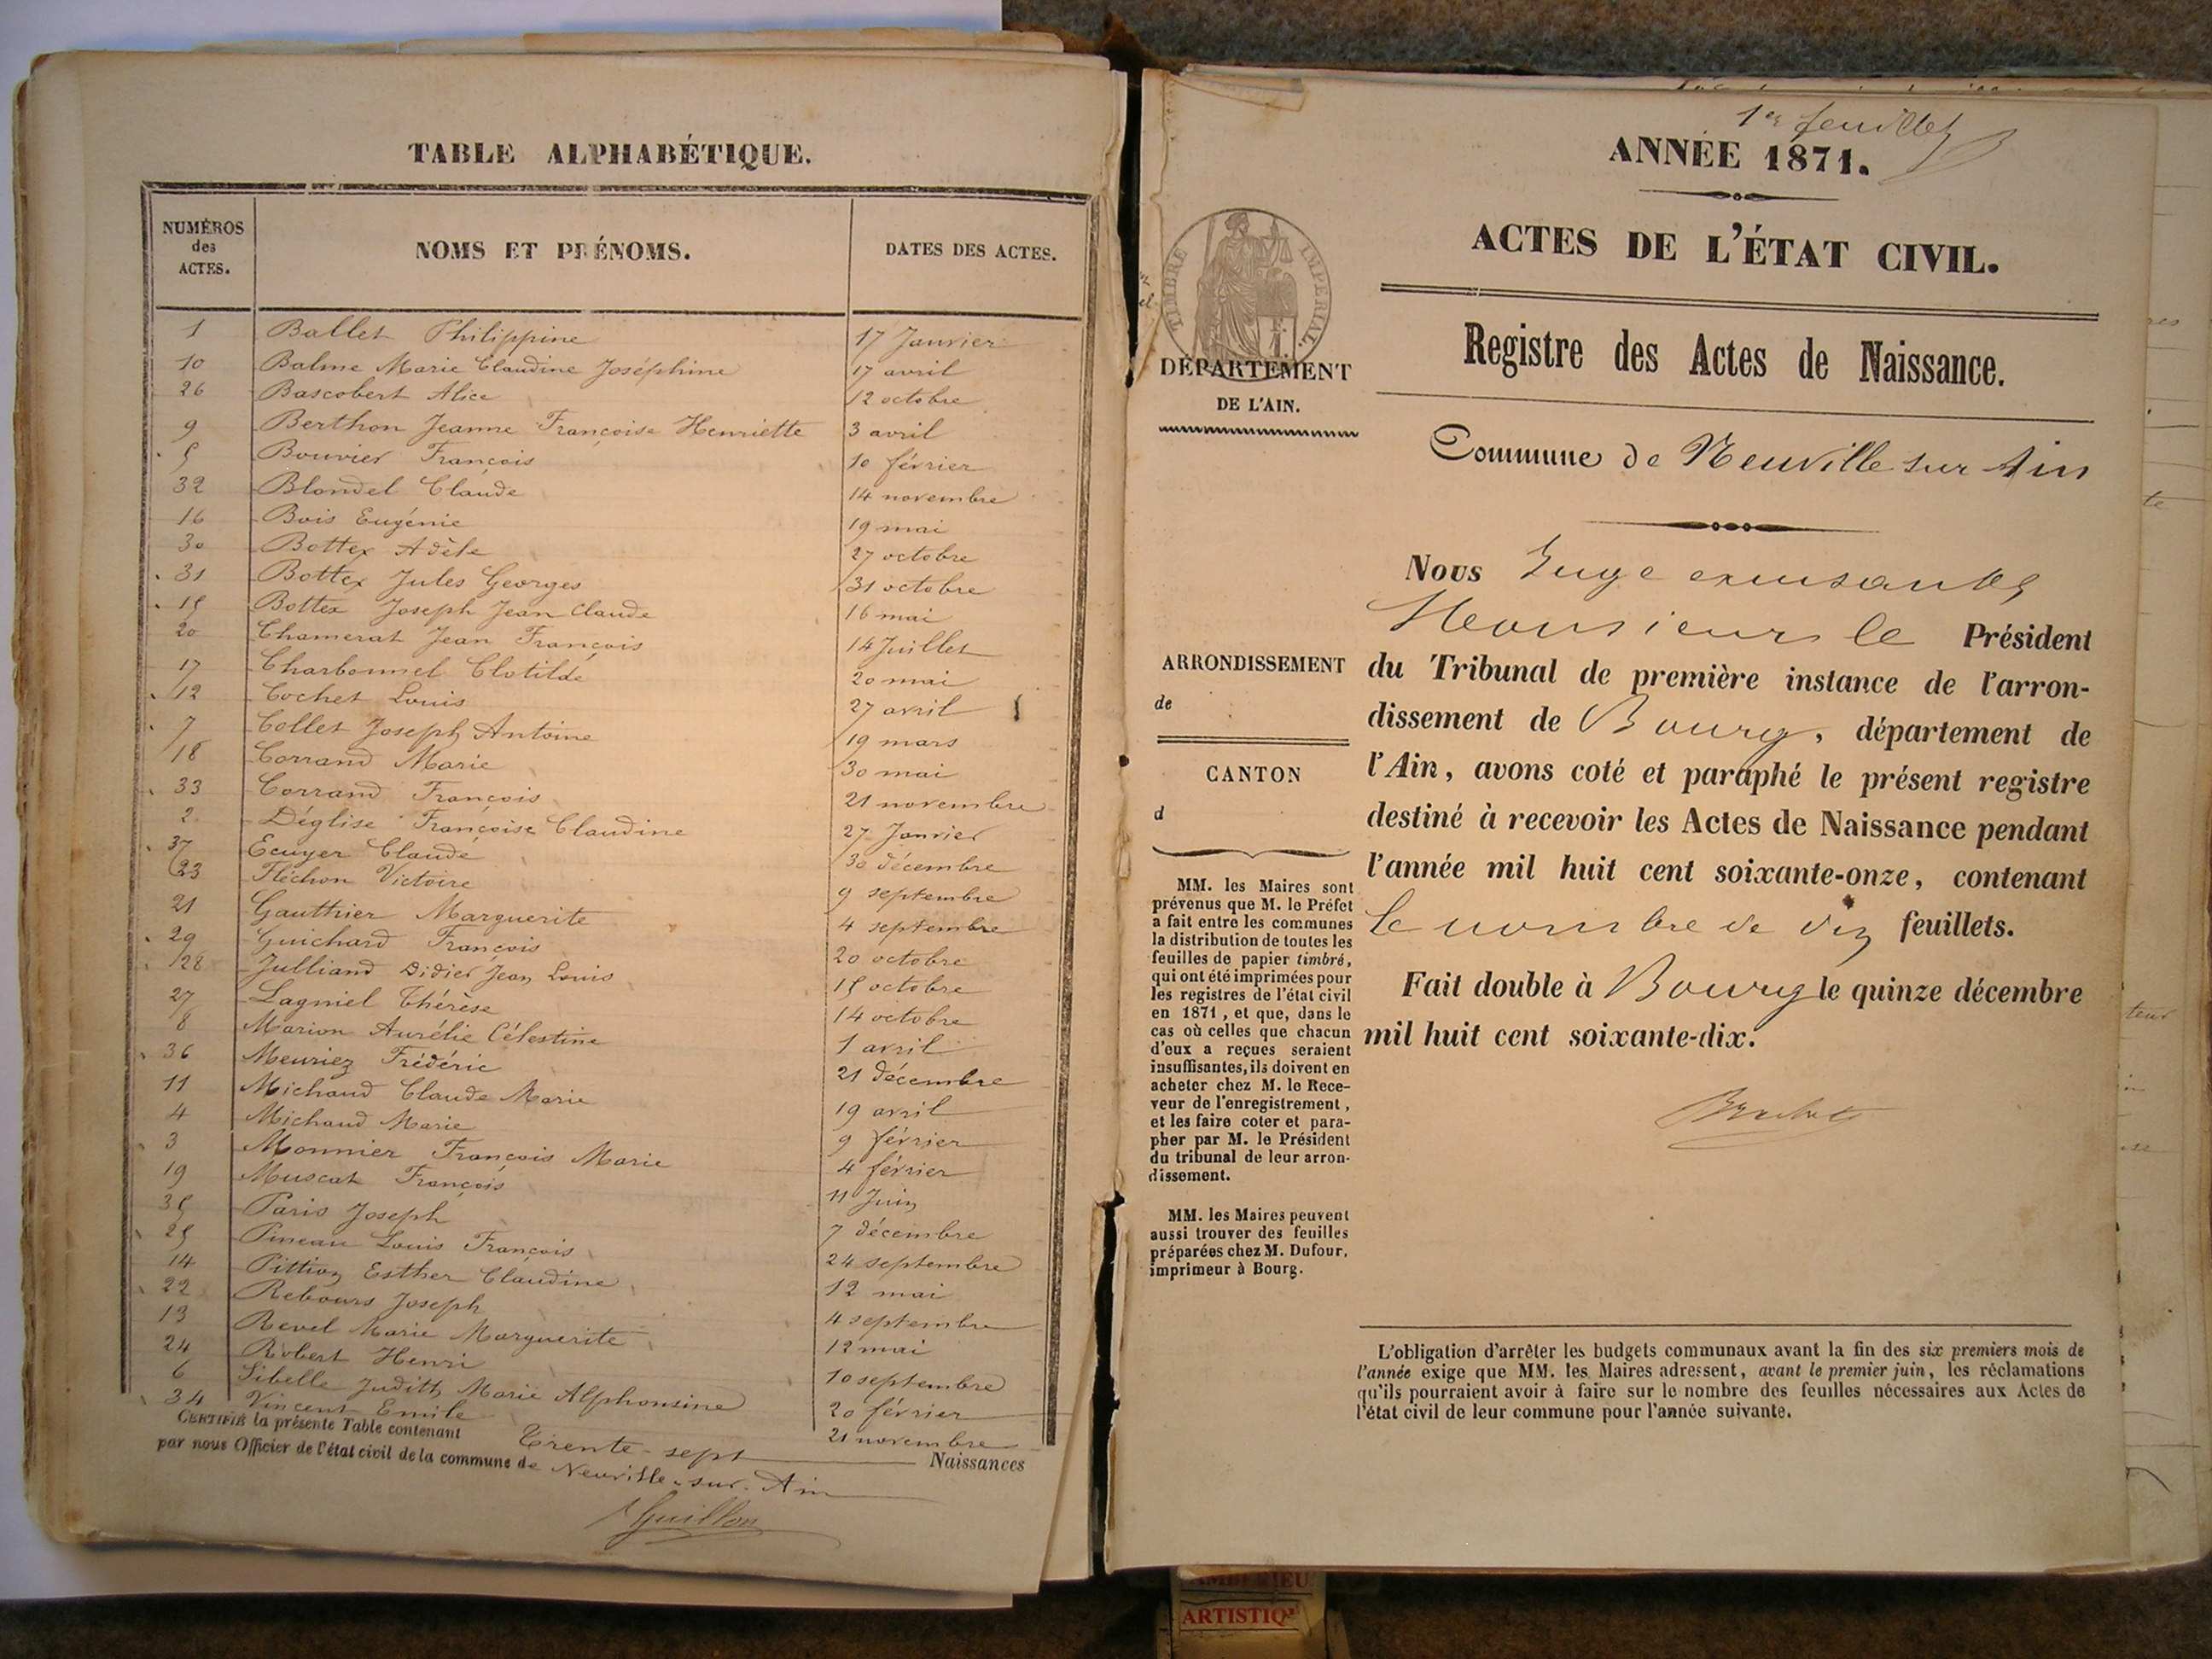 TABLE ALPHABÉTIQUE.
NUMÉROS des ACTES.
NOMS ET PRÉNOMS.
DATES DES ACTES.
1 Ballet Philippine 17 Janvier
10 Balme Marie Claudine Joséphine 17 avril
26 Bascobert Alice 12 octobre
9 Berthon Jeanne Françoise Henriette 3 avril
5 Bouvier François 10 février
32 Blondel Claude 14 novembre
16 Bois Eugénie 19 mai
30 Bottex Adèle 27 octobre
31 Bottex Jules Georges 31 octobre
15 Bottex Joseph Jean Claude 16 mai
20 Chamerat Jean François 14 Juillet
17 Charbonnel Clotilde 20 mai
12 Cochet Louis 27 avril
7 Collet Joseph Antoine 19 mars
18 Corrand Marie 30 mai
33 Corrand François 21 novembre
2 Déglise Françoise Claudine 27 Janvier
37 Ecuyer Claude 30 décembre
23 Fléchon Victoire 9 septembre
21 Gauthier Marguerite 4 septembre
29 Guichard François 20 octobre
28 Julliand Didier Jean Louis 15 octobre
27 Lagniel Thérèse 14 octobre
8 Marion Aurélie Célestine 1 avril
36 Meuriez Frédéric 21 décembre
11 Michaud Claude Marie 19 avril
4 Michaud Marie 9 février
3 Monnier François Marie 4 février
19 Muscat François 11 Juin
35 Paris Joseph 7 décembre
25 Pineau Louis François 24 septembre
14 Pittion Esther Claudine 12 mai
22 Rebours Joseph 4 septembre
13 Revel Marie Marguerite 12 mai
24 Robert Henri 10 septembre
6 Sibelle Judith Marie Alphonsine 20 février
34 Vincent Emile 21 novembre
CERTIFIÉ la présente Table contenant Trente-sept Naissances
par nous Officier de l'état civil de la commune de Neuville-sur-Ain
Guillon
1er feuillet
ANNÉE 1871.
ACTES DE L'ÉTAT CIVIL.
TIMBRE IMPÉRIAL.
DÉPARTEMENT
DE L'AIN.
Registre des Actes de Naissance.
Commune de Neuville sur Ain
Nous Juge
Monsieur le Président
du Tribunal de première instance de l'arron-
dissement de Bourg, département de
l'Ain, avons coté et paraphé le présent registre
destiné à recevoir les Actes de Naissance pendant
l'année mil huit cent soixante-onze, contenant
le nombre de dix feuillets.
Fait double à Bourg le quinze décembre
mil huit cent soixante-dix.
ARRONDISSEMENT
de
CANTON
d
MM. les Maires sont
prévenus que M. le Préfet
a fait entre les communes
la distribution de toutes les
feuilles de papier timbré,
qui ont été imprimées pour
les registres de l'état civil
en 1871, et que, dans le
cas où celles que chacun
d'eux a reçues seraient
insuffisantes, ils doivent en
acheter chez M. le Rece-
veur de l'enregistrement,
et les faire coter et para-
pher par M. le Président
du tribunal de leur arron-
dissement.
MM. les Maires peuvent
aussi trouver des feuilles
préparées chez M. Dufour,
imprimeur à Bourg.
L'obligation d'arrêter les budgets communaux avant la fin des six premiers mois de
l'année exige que MM. les Maires adressent, avant le premier juin, les réclamations
qu'ils pourraient avoir à faire sur le nombre des feuilles nécessaires aux Actes de
l'état civil de leur commune pour l'année suivante.
ARTISTIQ